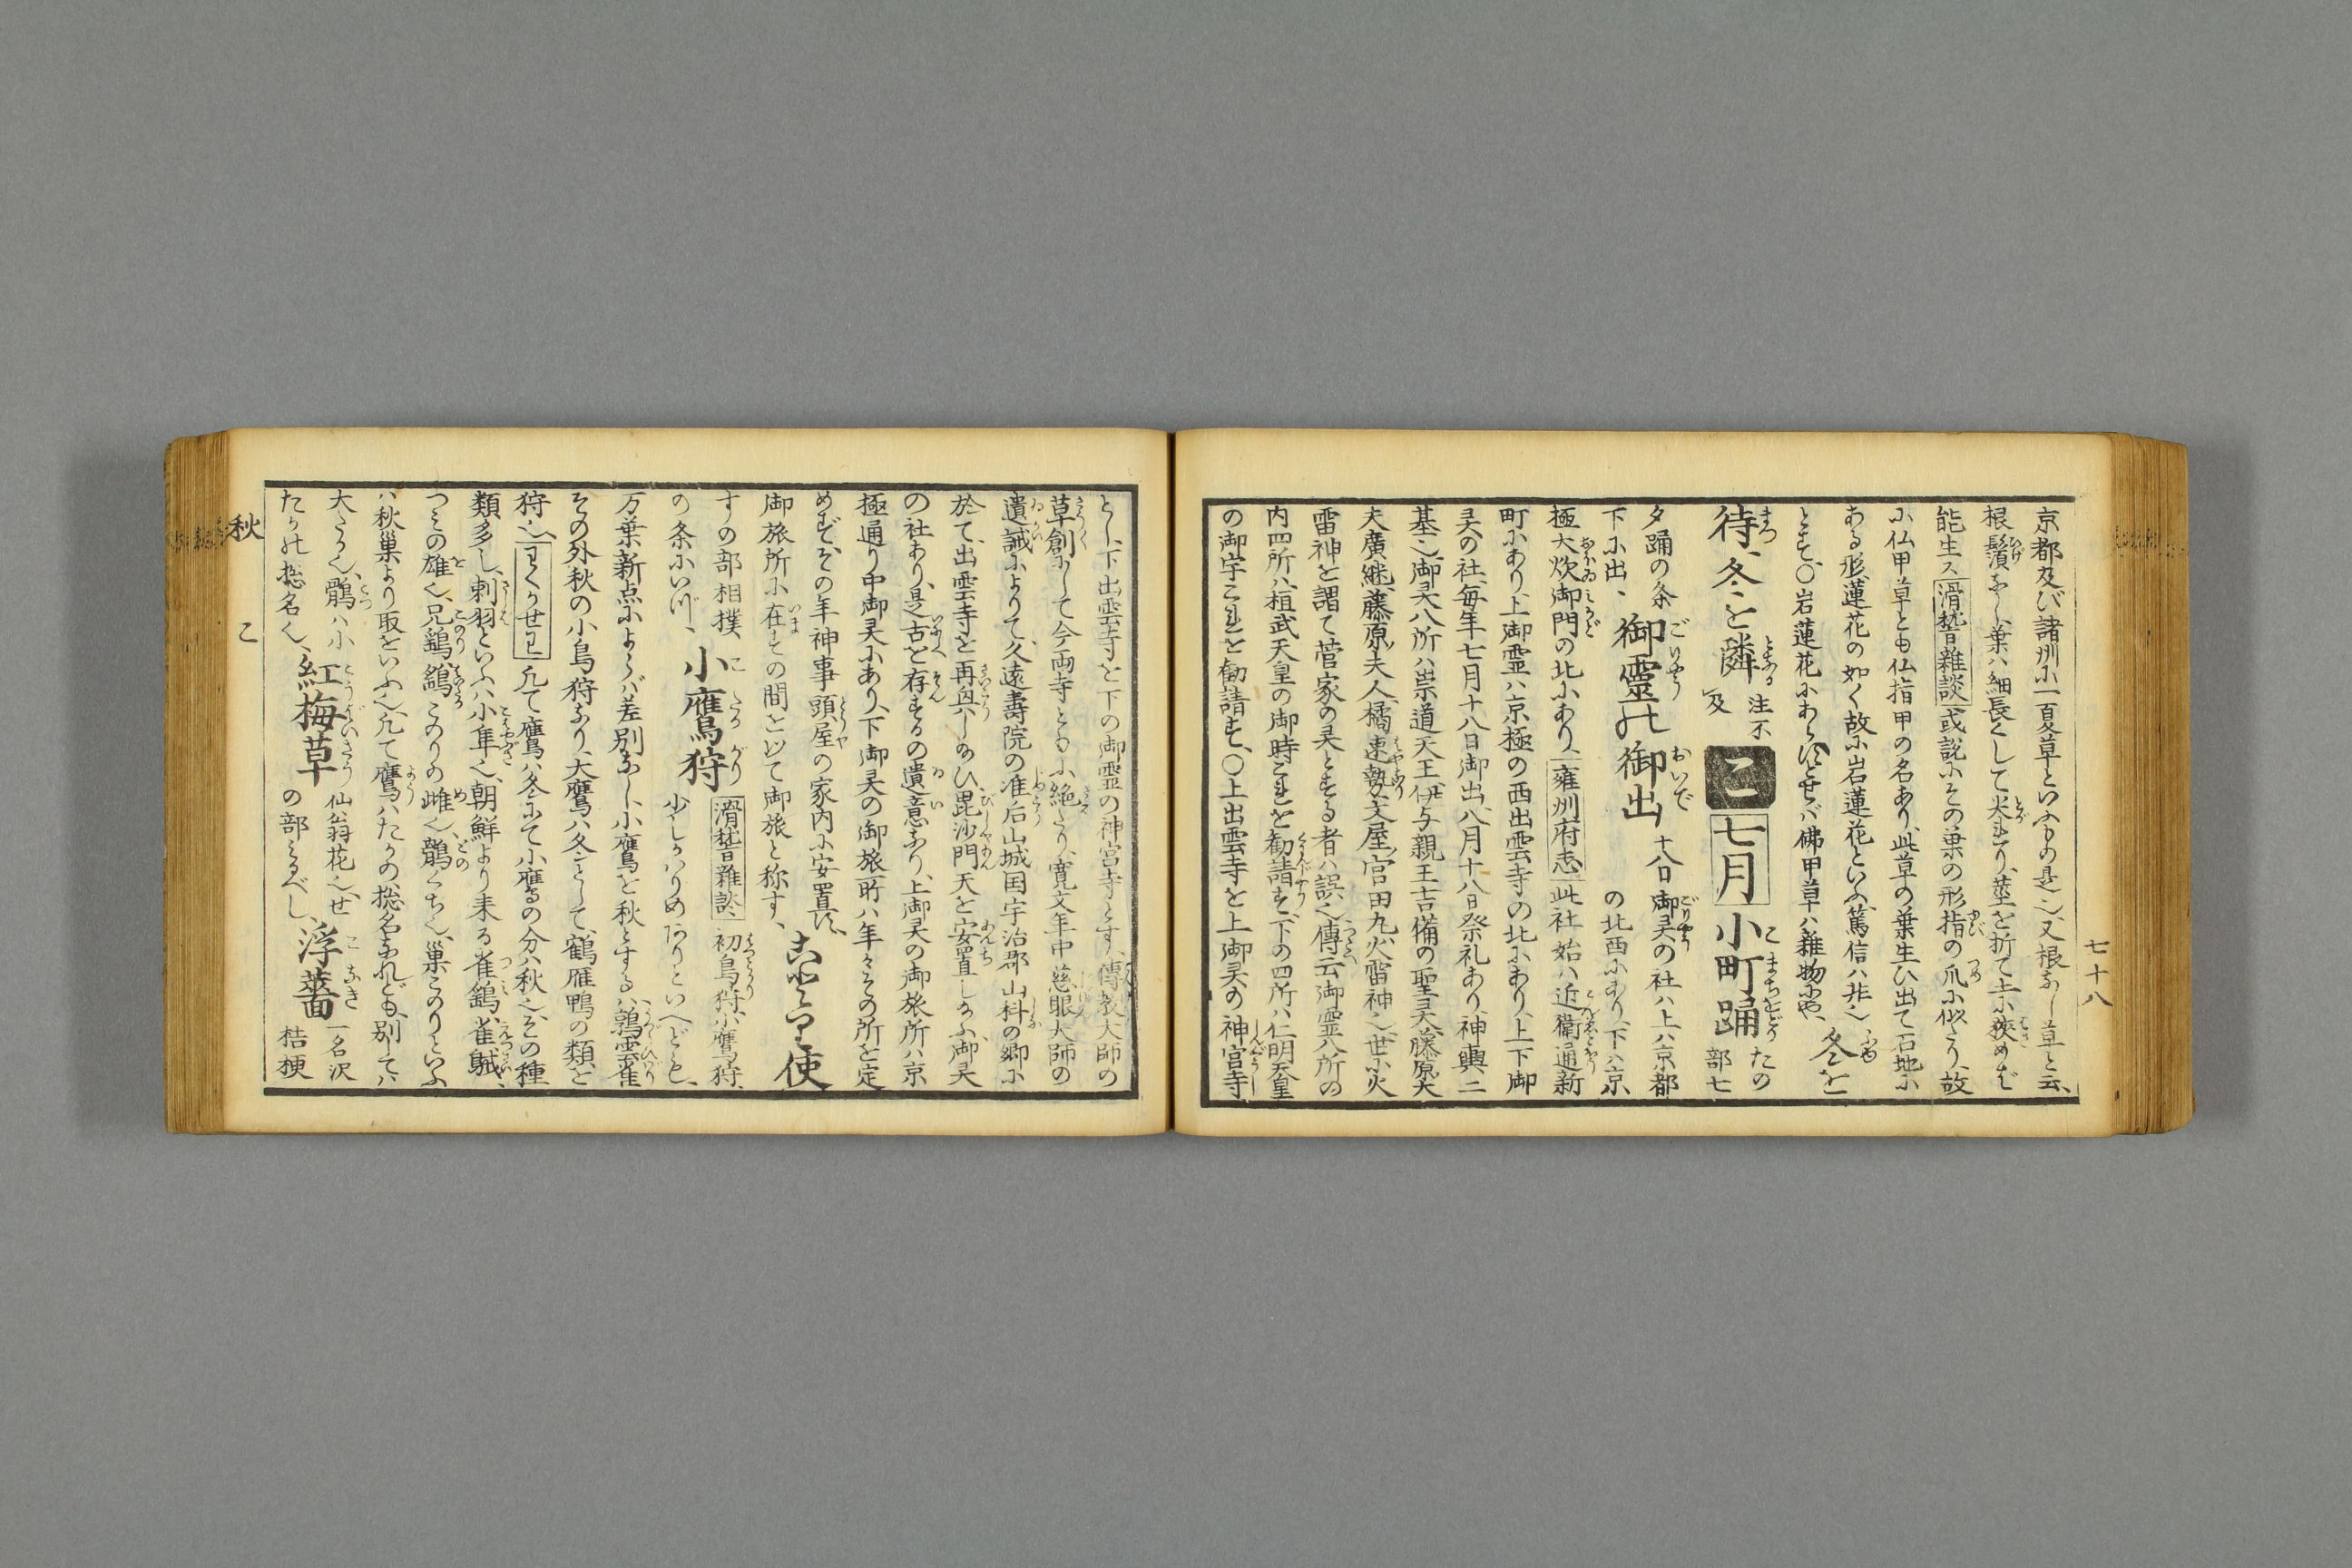 七十八
京都及び諸州に一夏草といふもの是也又根なし草と云、
根鬚なし葉ハ細長くして尖れり、莖を折て土に挾めば
能生ス滑稽雜談或説にその葉の形指の爪に似たり、故
に仏甲草とも仏指甲の名あり、此草の葉生ひ出て石地に
ある形蓮花の如く故に岩蓮花といふ、篤信ハ非也
とす、○岩蓮花にあらずとせバ佛甲草ハ雜物にや、冬を
待、冬を隣 注不及 こ 七月 小町踊 たの部七
夕踊の条下に出、御靈の御出 十八日御灵の社ハ上ハ京都の北西にあり、下ハ京
極大炊御門の北にあり、雍州府志此社始ハ近衞通新
町にあり、上御霊ハ京極の西出雲寺の北にあり、上下御
灵の社、毎年七月十八日御出、八月十八日祭礼あり、神輿二
基也、御灵八所ハ崇道天王、伊与親王吉備の聖灵、藤原大
夫廣継、藤原夫人、橘速勢、文屋宮田丸、火雷神也、世に火
雷神を謂て菅家の灵とする者ハ誤也、傳云御霊八所の
内四所ハ桓武天皇の御時これを勧請す、下の四所ハ仁明天皇
の御宇これを勧請す、○上出雲寺を上御灵の神宮寺
とし、下出雲寺を下の御霊の神宮寺とす、傳教大師の
草創にして今両寺ともに絶たり、寛文年中慈眼大師の
遺誡によりて、久遠壽院の准后山城国宇治郡山科の郷に
於て、出雲寺を再興し給ひ、毘沙門天を安置し給ふ、御灵
の社あり、是古を存するの遺意なり、上御灵の御旅所ハ京
極通り中御灵にあり、下御灵の御旅所ハ年々その所を定
めず、その年神事頭屋の家内に安置す、
御旅所に在その間を以て御旅と称す、ことり使
すの部相撲の条に出づ、小鷹狩 滑稽雜談 初鳥狩、小鷹狩、少しかハりめありといへども、
万葉新点によらバ差別なし小鷹を秋とするハ、鶉雲雀
その外秋の小鳥狩なり、大鷹ハ冬として、鶴雁鴨の類を
狩也 凡て鷹ハ冬にて小鷹の分ハ秋也、その種
類多し、刺羽といふハ小隼也、朝鮮より来る雀鷂、雀𪀚、
つみの雄也、兄鷂、鷂このりの雌也、鶻くちん、巣このりといふ
ハ秋巣より取をいふ也、凡て鷹ハたかの惣名なれども、別してハ
大たか也、鶻ハ小たかの惣名也、紅梅草 仙翁花也、せの部みるべし、浮薔 一名沢桔梗
秋
こ